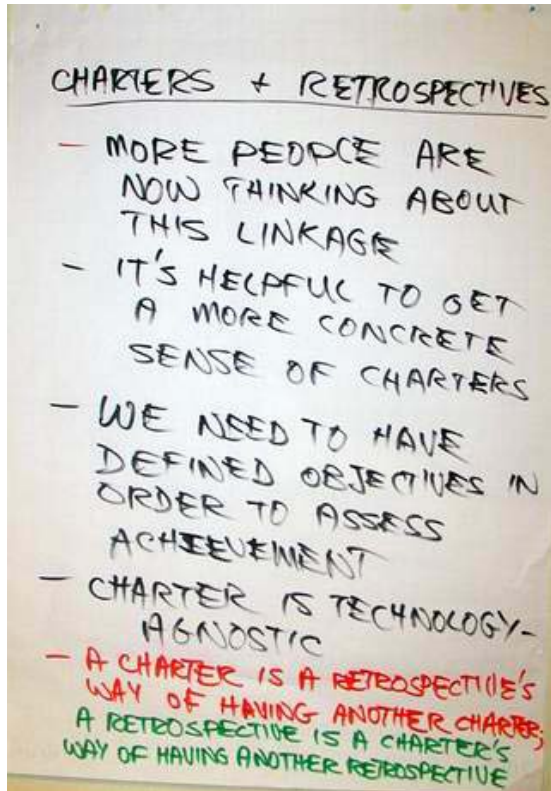 CHARTERS + RETROSPECTIVES
- MORE PEOPLE ARE
NOW THINKING ABOUT
THIS LINKAGE
- IT'S HELPFUL TO GET
A MORE CONCRETE
SENSE OF CHARTERS
- WE NEED TO HAVE
DEFINED OBJECTIVES IN
ORDER TO ASSESS
ACHIEVEMENT
- CHARTER IS TECHNOLOGY-
AGNOSTIC
- A CHARTER IS A RETROSPECTIVE'S
WAY OF HAVING ANOTHER CHARTER;
A RETROSPECTIVE IS A CHARTER'S
WAY OF HAVING ANOTHER RETROSPECTIVE